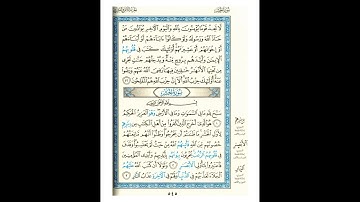 لَّا تَجِدُ قَوْمًا يُؤْمِنُونَ بِاللَّهِ وَالْيَوْمِ الْآخِرِ يُوَادُّونَ مَنْ
حَادَّ اللَّهَ وَرَسُولَهُ وَلَوْ كَانُوا آبَاءَهُمْ أَوْ أَبْنَاءَهُمْ
أَوْ إِخْوَانَهُمْ أَوْ عَشِيرَتَهُمْ أُولَٰئِكَ كَتَبَ فِي قُلُوبِهِمُ
الْإِيمَانَ وَأَيَّدَهُم بِرُوحٍ مِّنْهُ وَيُدْخِلُهُمْ جَنَّاتٍ تَجْرِي
مِن تَحْتِهَا الْأَنْهَارُ خَالِدِينَ فِيهَا رَضِيَ اللَّهُ عَنْهُمْ وَرَضُوا
عَنْهُ أُولَٰئِكَ حِزْبُ اللَّهِ أَلَا إِنَّ حِزْبَ اللَّهِ هُمُ الْمُفْلِحُونَ ٢٢
سُورَةُ الْحَشْرِ
بِسْمِ اللَّهِ الرَّحْمَٰنِ الرَّحِيمِ
سَبَّحَ لِلَّهِ مَا فِي السَّمَاوَاتِ وَمَا فِي الْأَرْضِ وَهُوَ الْعَزِيزُ الْحَكِيمُ
١ هُوَ الَّذِي أَخْرَجَ الَّذِينَ كَفَرُوا مِنْ أَهْلِ الْكِتَابِ مِن دِيَارِهِمْ
لِأَوَّلِ الْحَشْرِ مَا ظَنَنتُمْ أَن يَخْرُجُوا وَظَنُّوا أَنَّهُم مَّانِعَتُهُمْ
حُصُونُهُم مِّنَ اللَّهِ فَأَتَاهُمُ اللَّهُ مِنْ حَيْثُ لَمْ يَحْتَسِبُوا وَقَذَفَ
فِي قُلُوبِهِمُ الرُّعْبَ يُخْرِبُونَ بُيُوتَهُم بِأَيْدِيهِمْ وَأَيْدِي الْمُؤْمِنِينَ
فَاعْتَبِرُوا يَا أُولِي الْأَبْصَارِ ٢ وَلَوْلَا أَن كَتَبَ اللَّهُ عَلَيْهِمُ
الْجَلَاءَ لَعَذَّبَهُمْ فِي الدُّنْيَا وَلَهُمْ فِي الْآخِرَةِ عَذَابُ النَّارِ ٣
٥٤٥